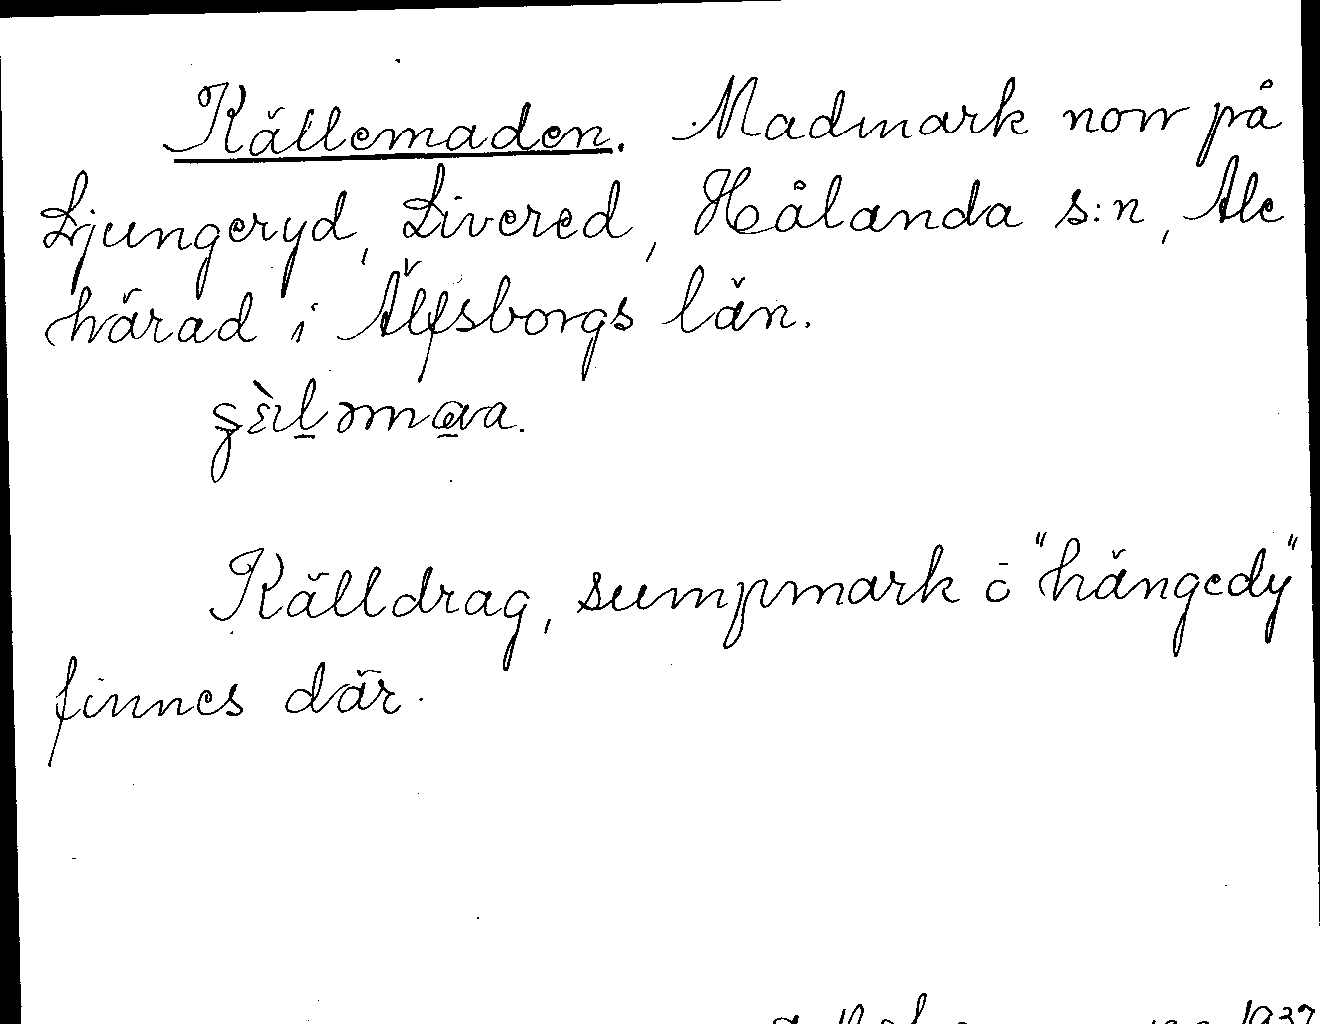 Källemaden. Madmark norr på
Ljungeryd, Livered, Hålanda s:n, Ale
härad i Älfsborgs län.
Källdrag, sumpmark o "hängedy"
finnes där.
1937